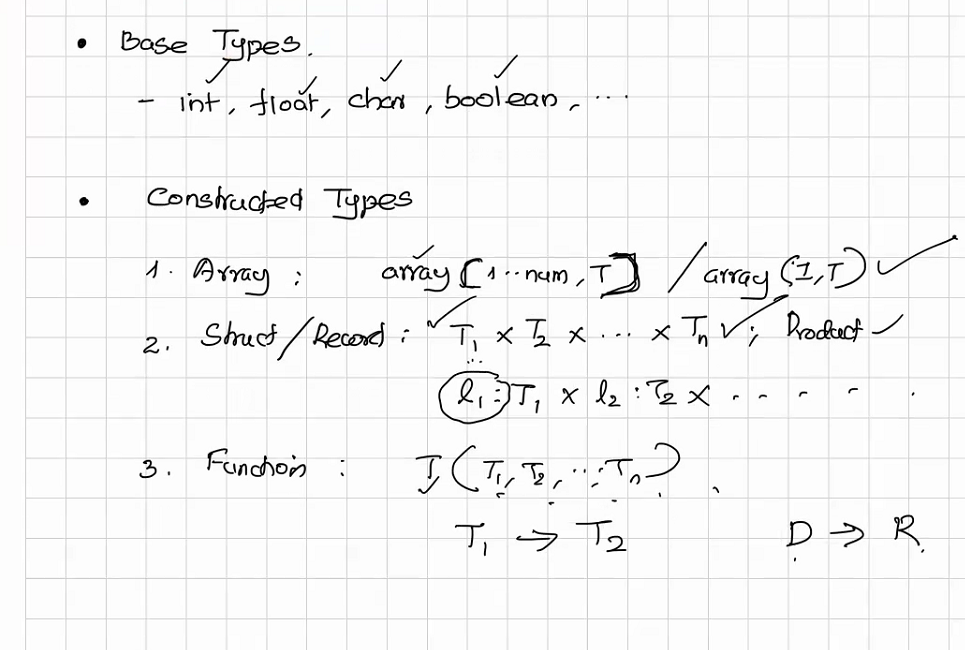 • Base Types.
- int, float, char, boolean, ...
• Constructed Types
1. Array : array [1..num, T] / array (I, T) ✓
2. Struct/Record : ✓ T₁ × T₂ × ... × Tₙ ✓; Product ✓
l₁ : T₁ × l₂ : T₂ × . . . . .
3. Function : T (T₁, T₂, ..., Tₙ)
T₁ → T₂ D → R